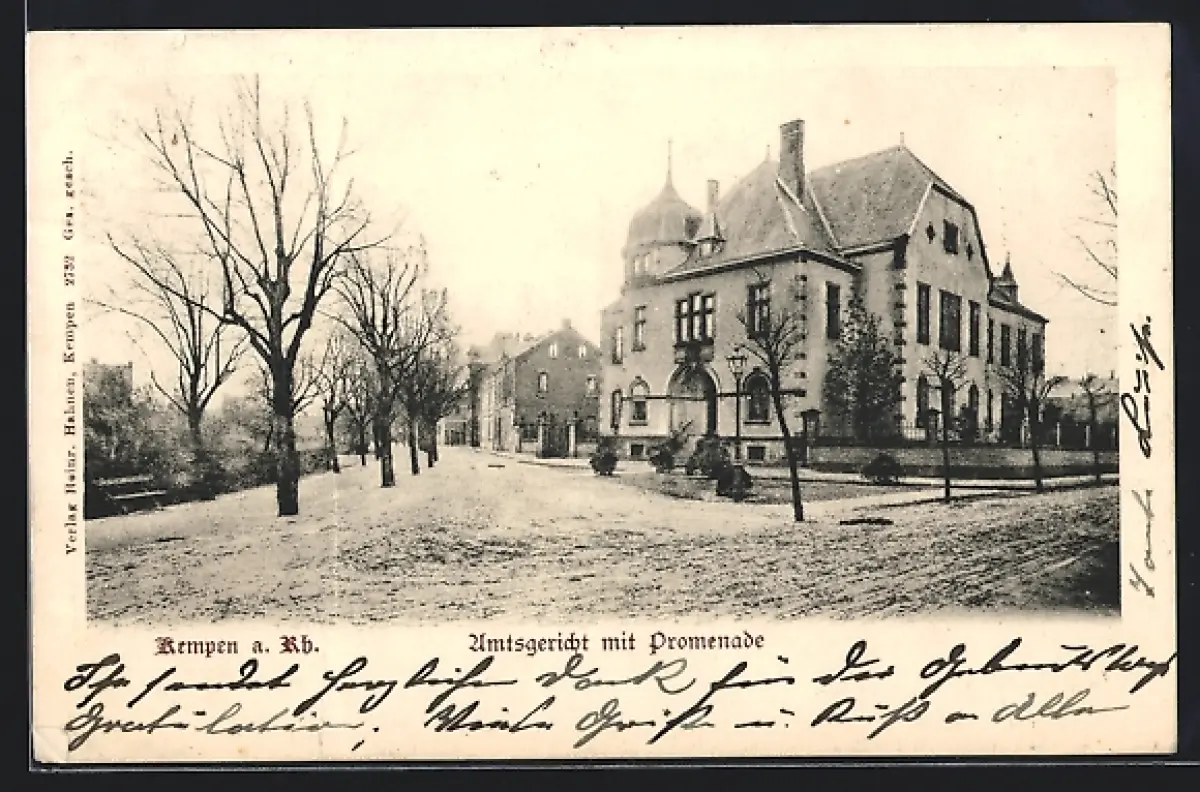 Verlag Heinr. Haknen, Kempen 2752 Ges. gesch.
Kempen a. Rh.
Amtsgericht mit Promenade
herzlichen Dank für die Geburtstags
Gratulation. Gruß u. Kuß an Alle